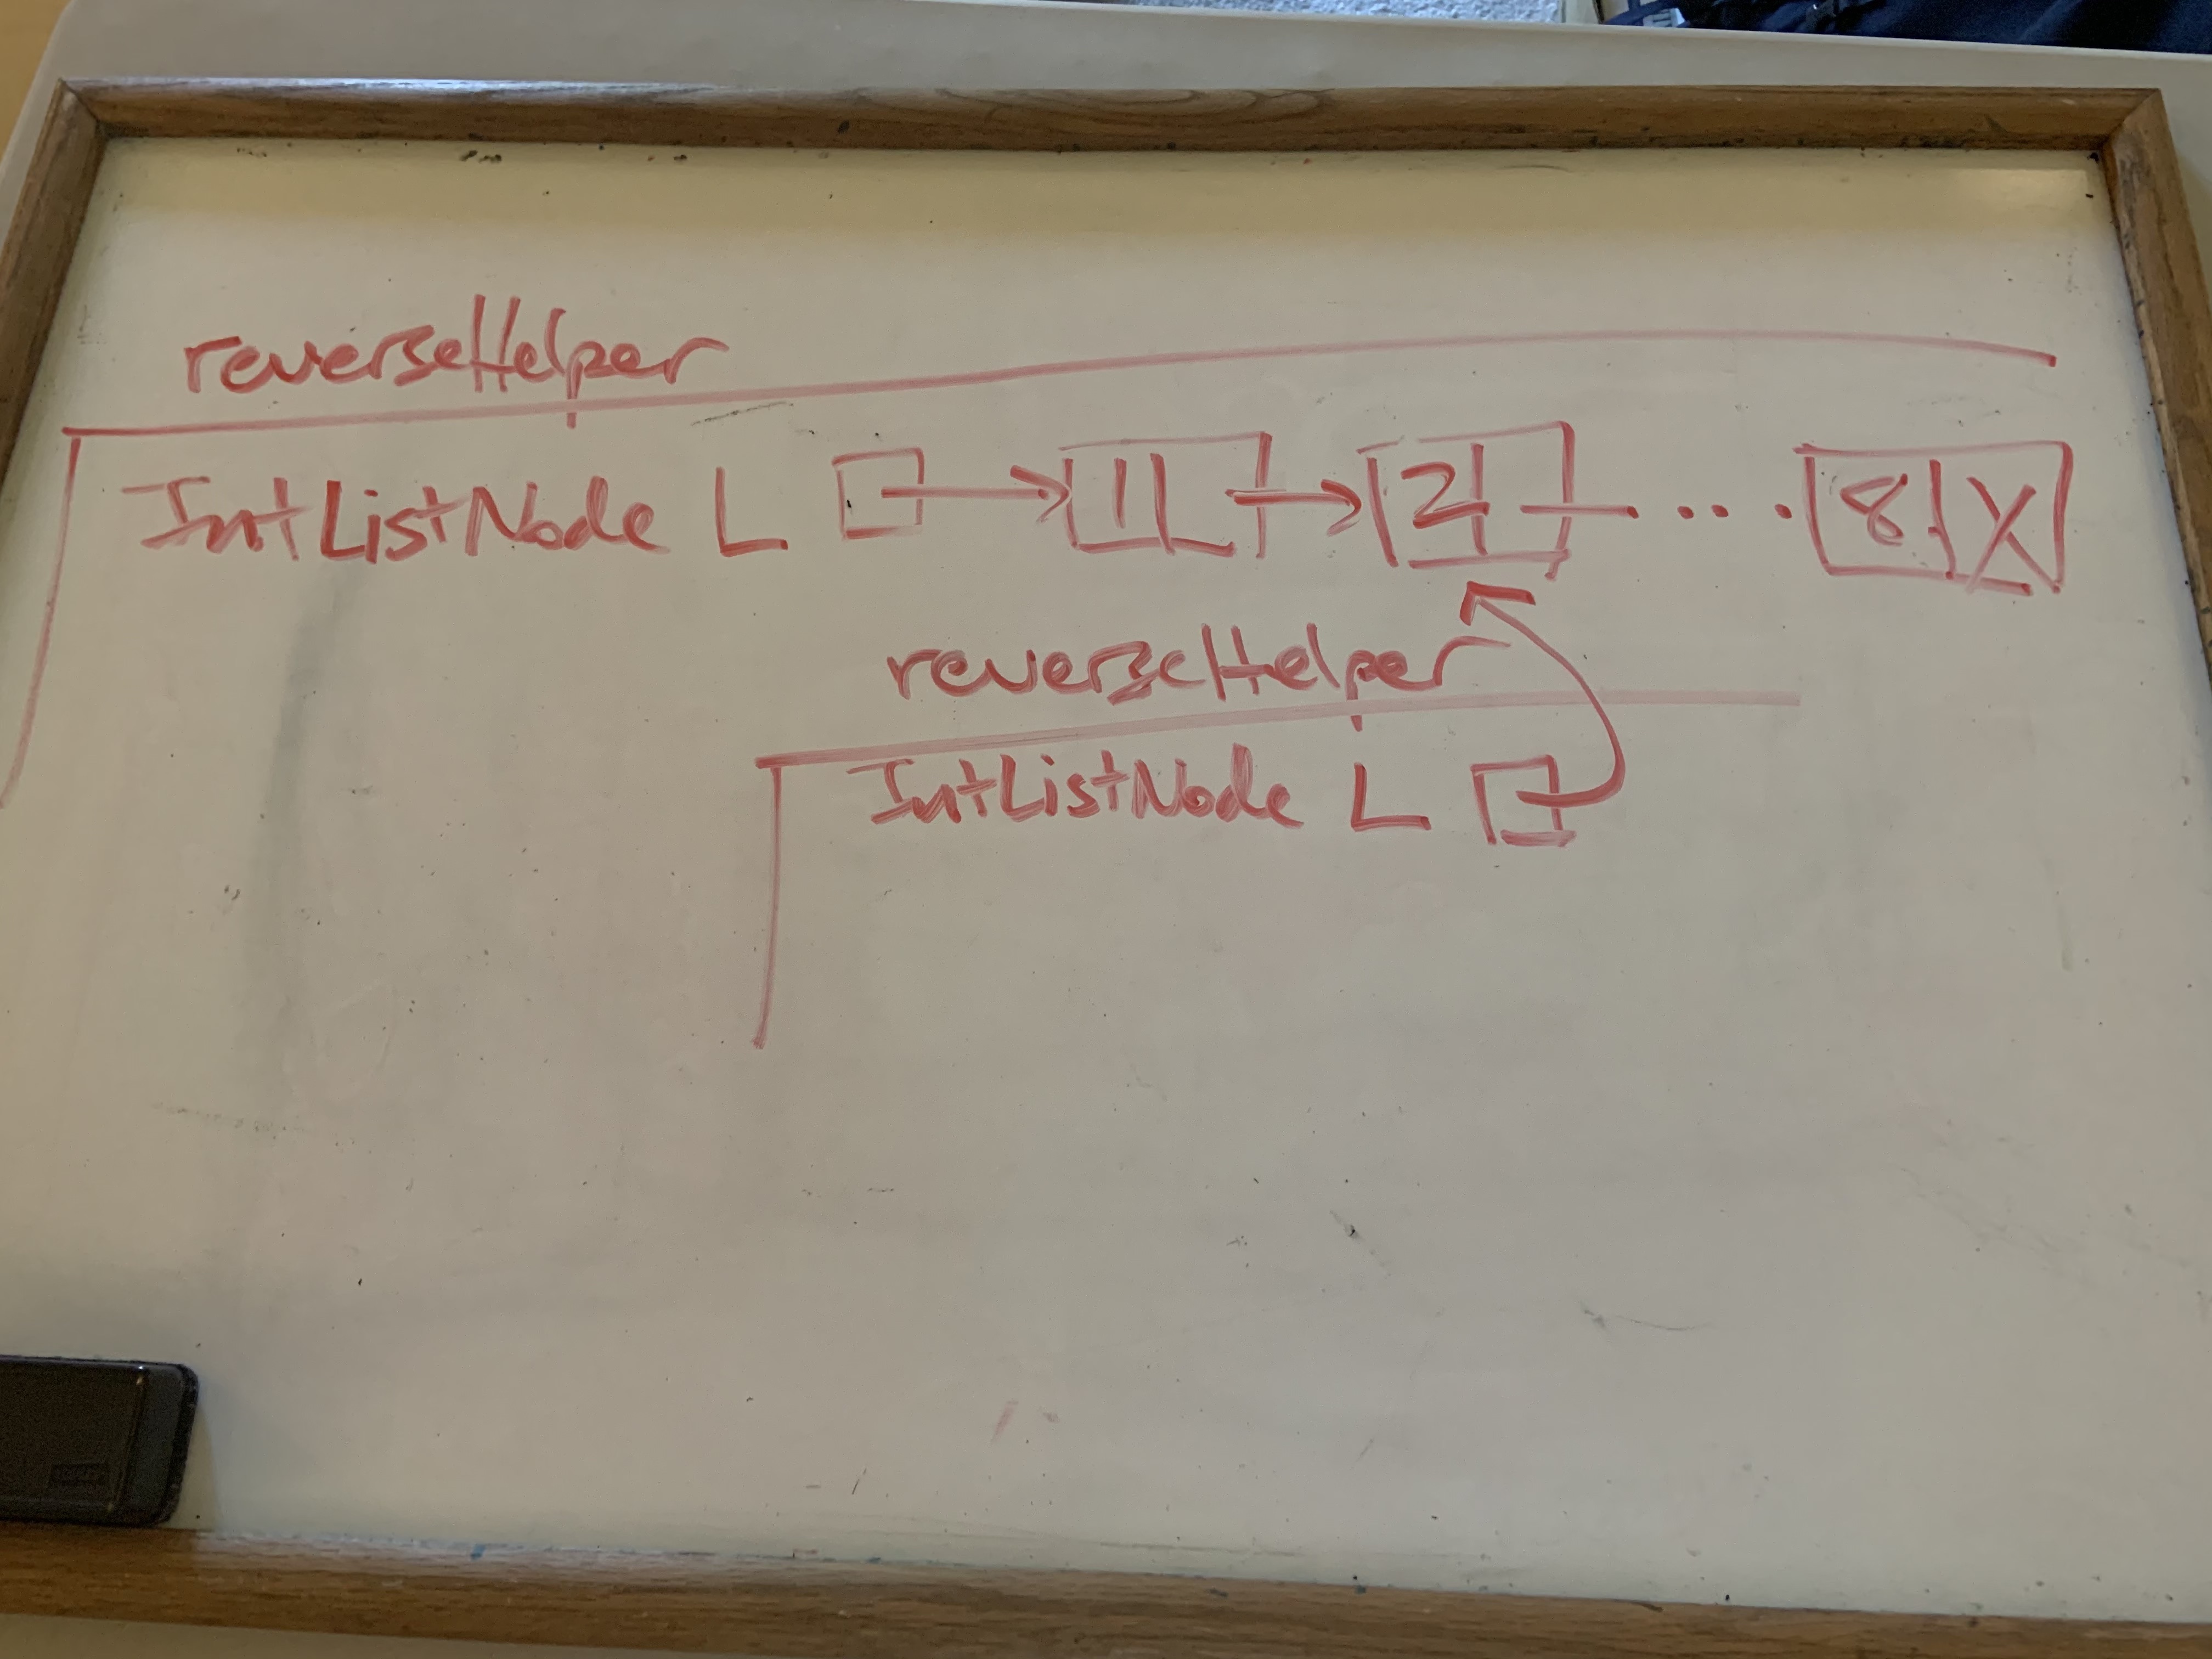 reverseHelper
IntListNode L 1 2 ... 8 X
reverseHelper
IntListNode L